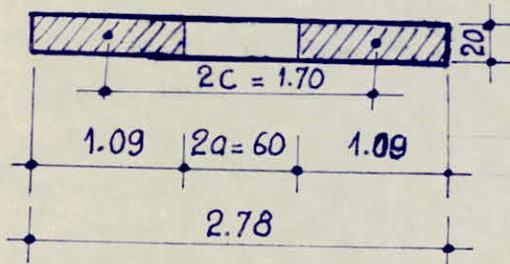 20
2C = 1.70
1.09 2a=60 1.09
2.78